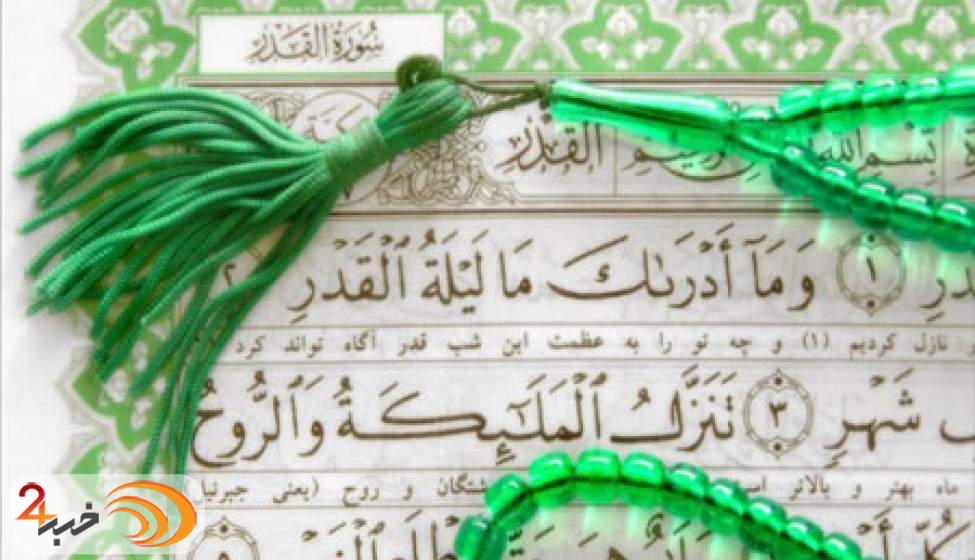 سُورَةُ القَدْرِ
بِسْمِ اللَّهِ القَدْر
دْرِ ١ وَمَآ أَدْرَىٰكَ مَا لَيْلَةُ ٱلْقَدْرِ ٢
نازل کردیم (۱) و چه تو را به عظمت این شب قدر آگاه تواند کرد
شَهْرٍ ٣ تَنَزَّلُ ٱلْمَلَـٰٓئِكَةُ وَٱلرُّوحُ
ماه بهتر و بالاتر است شتگان و روح (یعنی جبرئیل
خبر 24